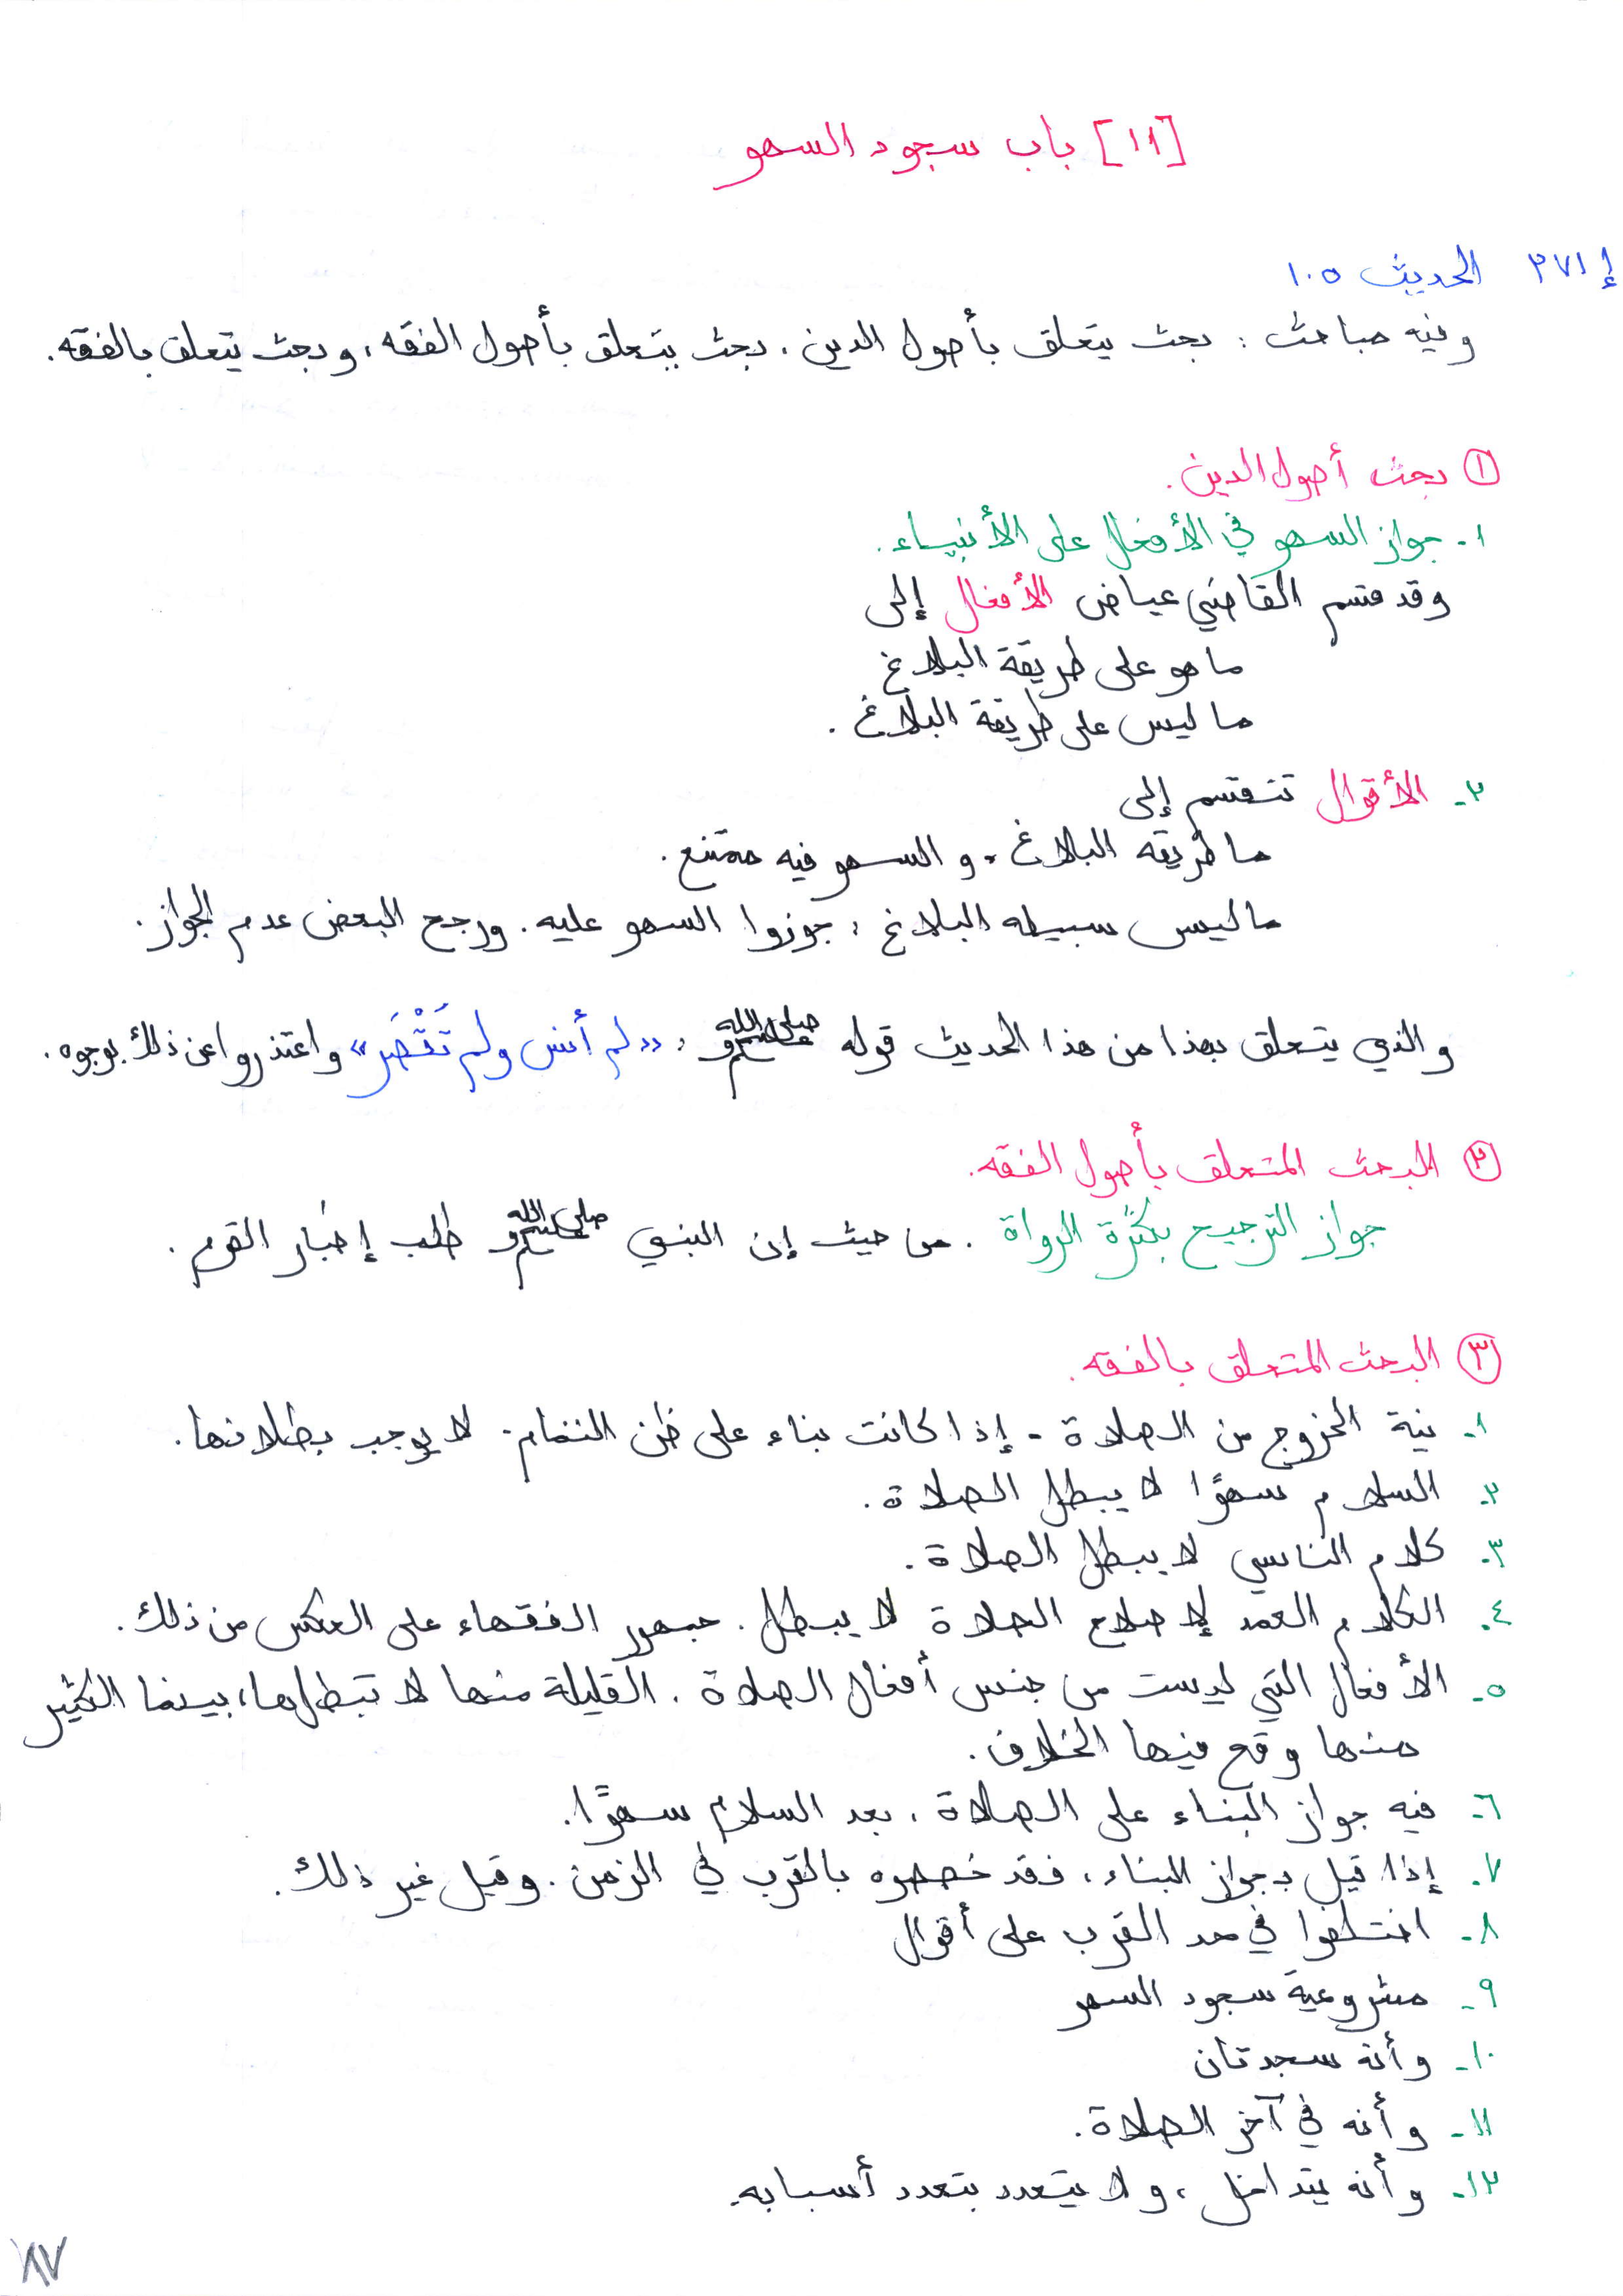 [١١] باب سجود السهو
إ ٢٧١ الحديث ١٠٥
وفيه مباحث : بحث يتعلق بأصول الدين، بحث يتعلق بأصول الفقه، وبحث يتعلق بالفقه.
① بحث أصول الدين.
١- جواز السهو في الأفعال على الأنبياء.
وقد قسم القاضي عياض الأفعال إلى
ما هو على طريقة البلاغ
ما ليس على طريقة البلاغ.
٢- الأقوال تنقسم إلى
ما طريقه البلاغ، والسهو فيه ممتنع.
ما ليس سبيله البلاغ، جوزوا السهو عليه. ورجح البعض عدم الجواز.
والذي يتعلق بهذا من هذا الحديث قوله صلى الله عليه وسلم: «لم أنس ولم تُقْصَر» واعتذروا عن ذلك بوجوه.
② البحث المتعلق بأصول الفقه.
جواز الترجيح بكثرة الرواة. من حيث إن النبي صلى الله عليه وسلم طلب إخبار القوم.
③ البحث المتعلق بالفقه.
١- نية الخروج من الصلاة - إذا كانت بناء على ظن التمام. لا يوجب بطلانها.
٢- السلام سهوًا لا يبطل الصلاة.
٣- كلام الناسي لا يبطل الصلاة.
٤- الكلام العمد لإصلاح الصلاة لا يبطل. جمهور الفقهاء على العكس من ذلك.
٥- الأفعال التي ليست من جنس أفعال الصلاة. القليلة منها لا تبطلها، بينما الكثير
منها وقع فيها الخلاف.
٦- فيه جواز البناء على الصلاة، بعد السلام سهوًا.
٧- إذا قيل بجواز البناء، فقد خصصوه بالقرب في الزمن. وقيل غير ذلك.
٨- اختلفوا في حد القرب على أقوال
٩- مشروعية سجود السهو
١٠- وأنه سجدتان
١١- وأنه في آخر الصلاة.
١٢- وأنه يتداخل، ولا يتعدد بتعدد أسبابه.
٨٧